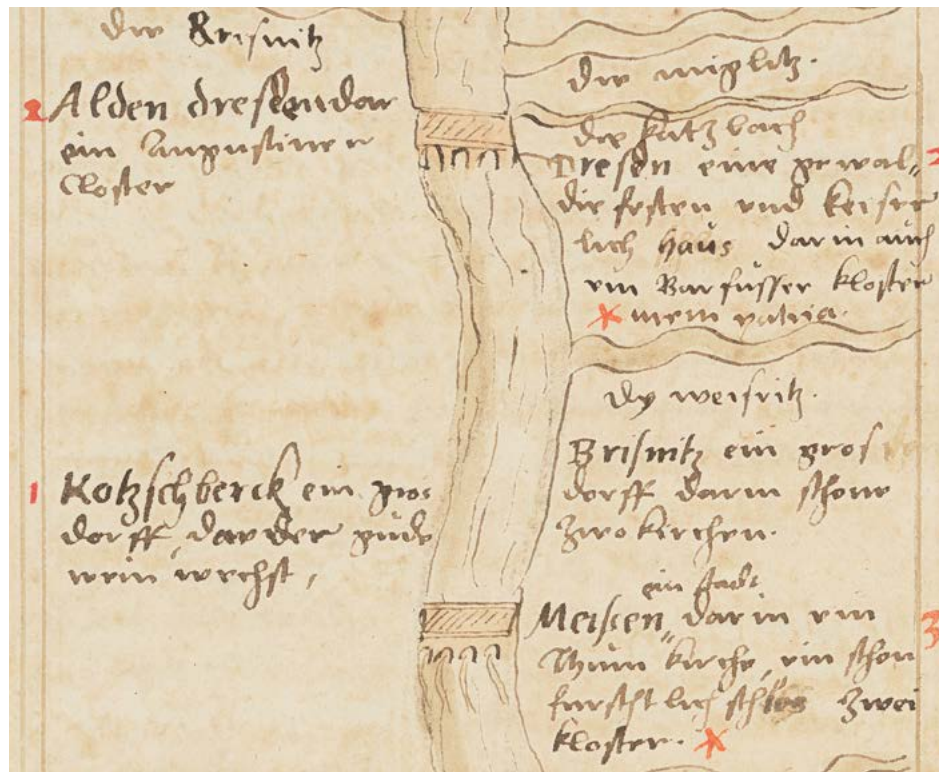 die Krisnitz
2 Alden dresen dar
ein Augustiner
Closter
1 Kotzschberck ein gros
dorff, dar der gude
wein wechst,
die miglitz.
die katzbach
Dresen eine gewal-
die festen und keiser
lich haus darin auch
ein Barfusser kloster
mein patria.
dy weisritz.
Brisnitz ein gros
dorff darin schone
zwo kirchen.
ein stadt
Meissen darin ein 3
Thum kirche, ein schon
furstlich schlos zwei
kloster.